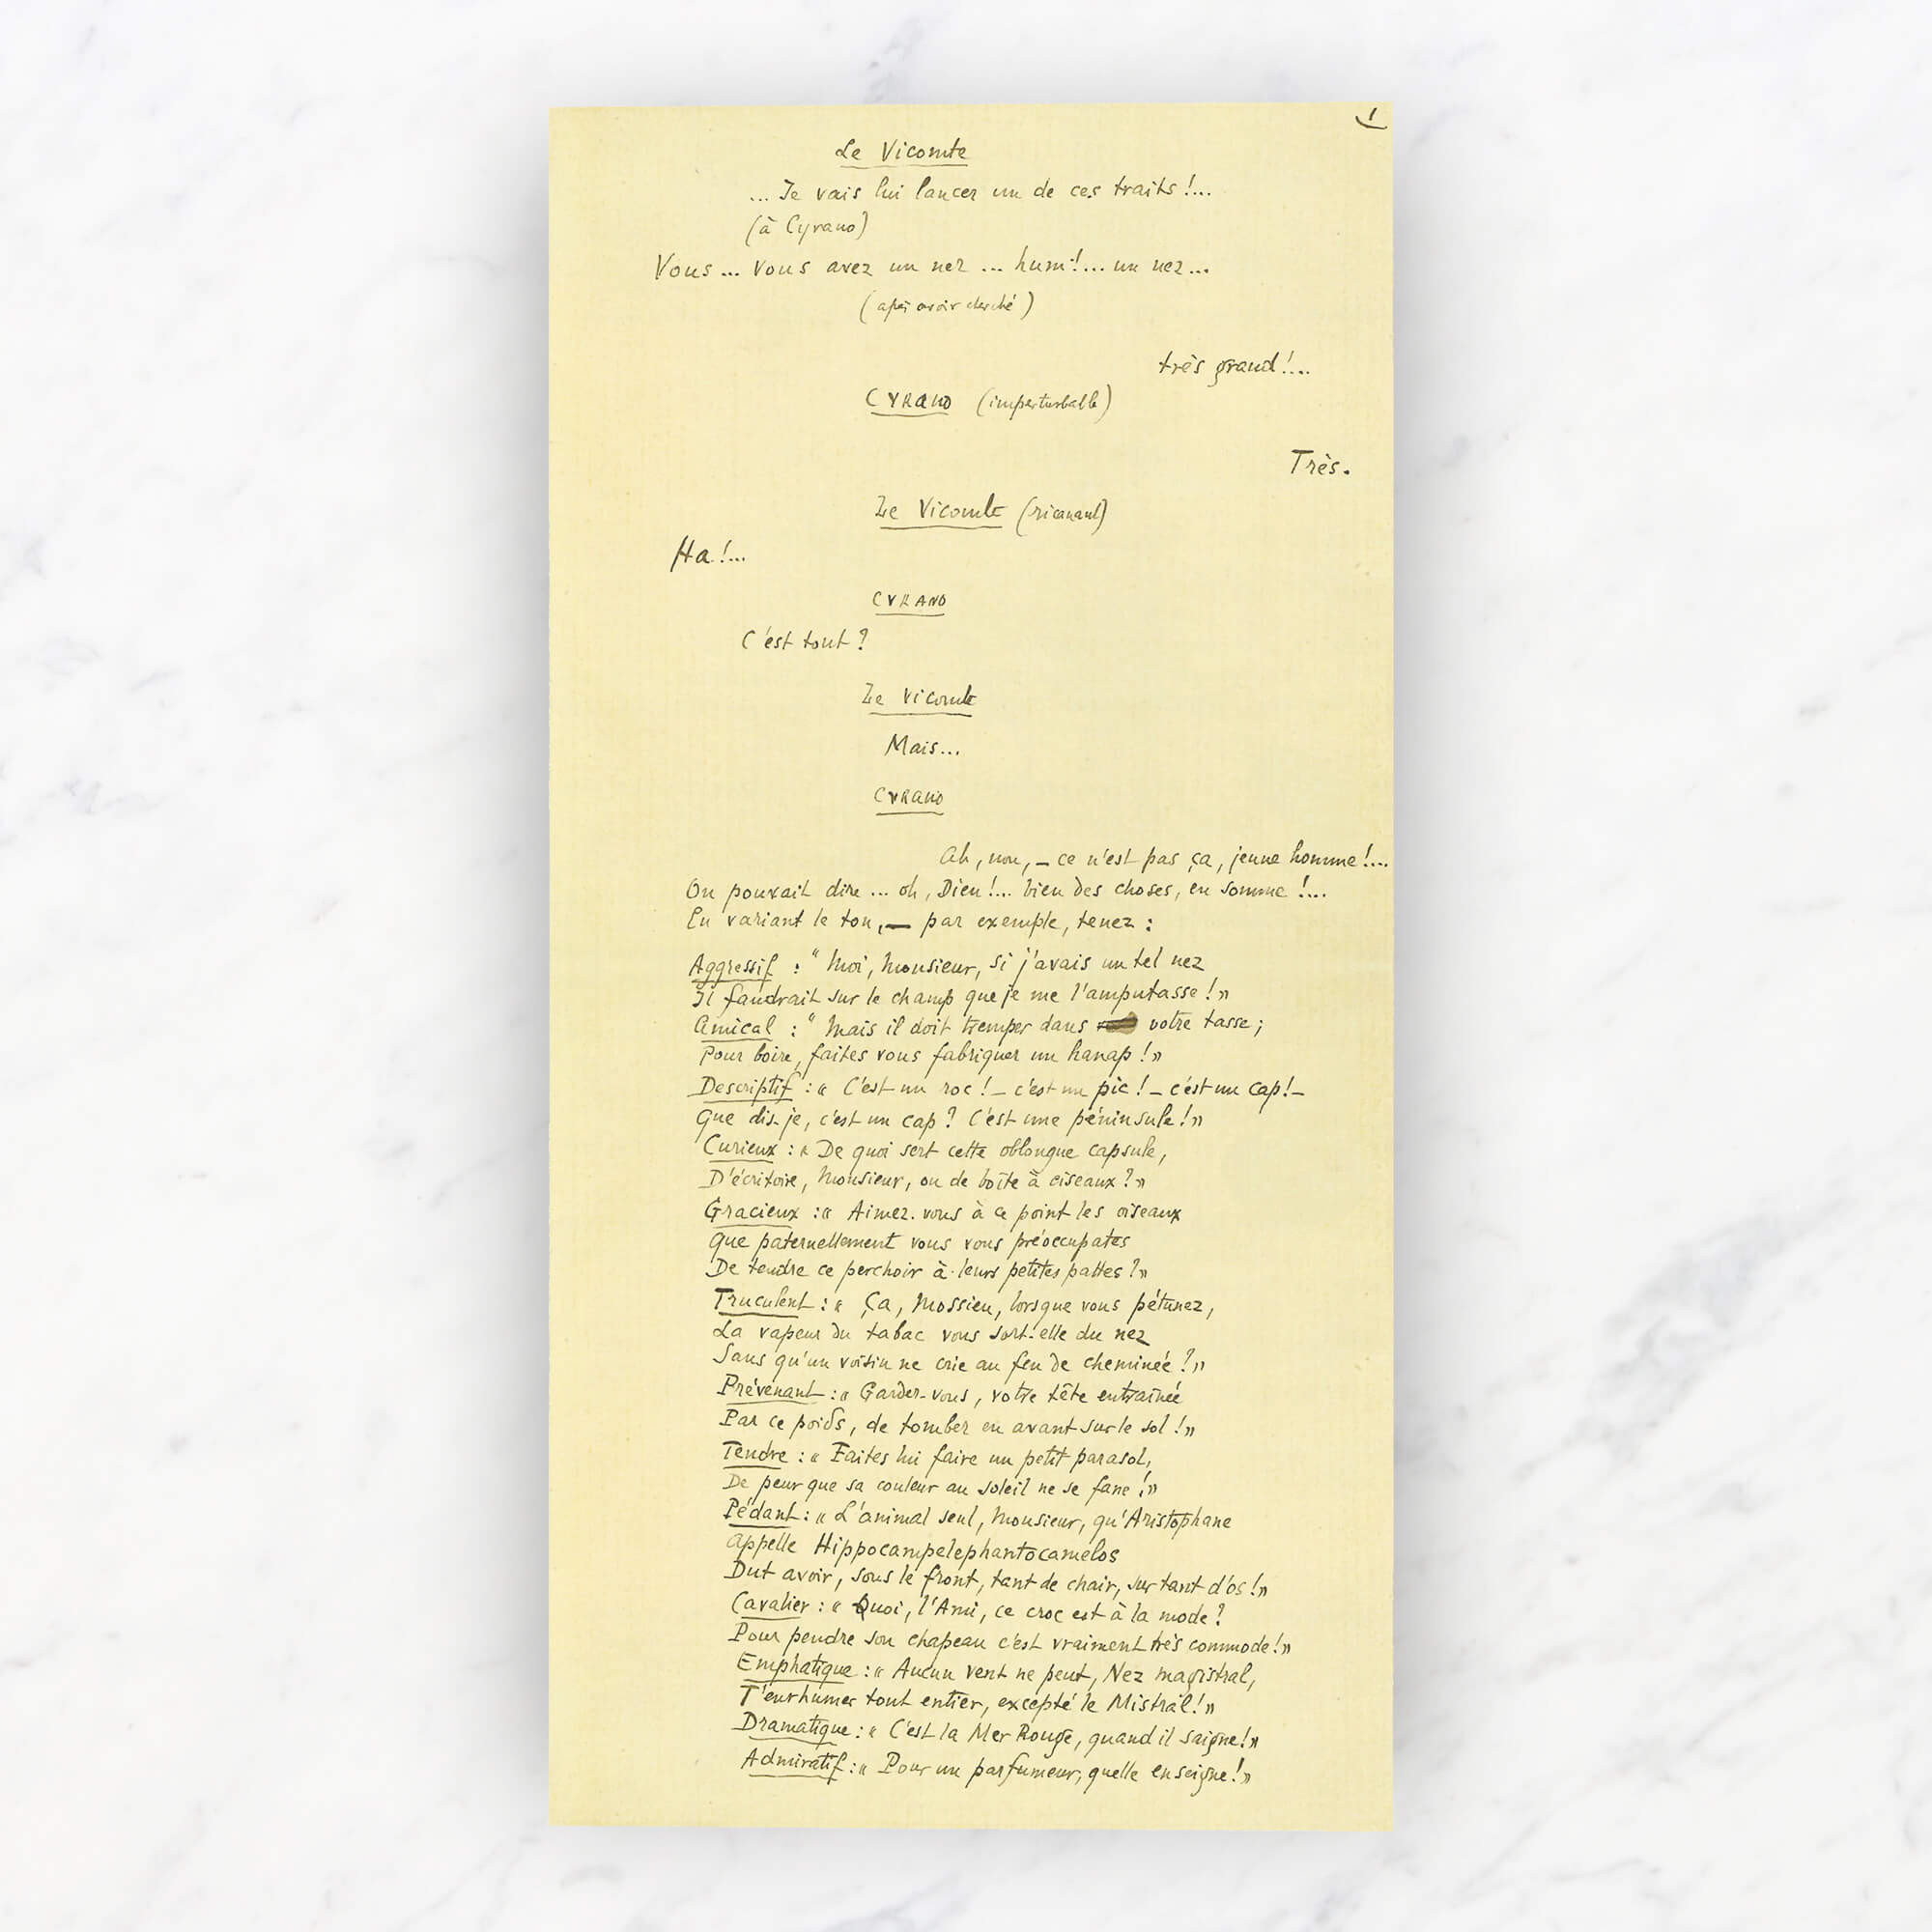 1
Le Vicomte
... Je vais lui lancer un de ces traits !...
(à Cyrano)
Vous ... vous avez un nez ... hum !... un nez ...
(après avoir cherché)
très grand !...
CYRANO (imperturbable)
Très.
Le Vicomte (ricanant)
Ha !...
CYRANO
C'est tout ?
Le Vicomte
Mais...
CYRANO
Ah, non, – ce n'est pas ça, jeune homme !...
On pouvait dire ... oh, Dieu !... bien des choses, en somme !...
En variant le ton, — par exemple, tenez :
Aggressif : " Moi, Monsieur, si j'avais un tel nez
Il faudrait sur le champ que je me l'amputasse ! »
Amical : " Mais il doit tremper dans votre tasse ;
Pour boire, faites vous fabriquer un hanap ! »
Descriptif : « C'est un roc ! – c'est un pic ! – c'est un cap ! –
Que dis-je, c'est un cap ? C'est une péninsule ! »
Curieux : « De quoi sert cette oblongue capsule,
D'écritoire, Monsieur, ou de boîte à ciseaux ? »
Gracieux : « Aimez-vous à ce point les oiseaux
Que paternellement vous vous préoccupates
De tendre ce perchoir à leurs petites pattes ? »
Truculent : « Ça, Mossieu, lorsque vous pétunez,
La vapeur du tabac vous sort-elle du nez
Sans qu'un voisin ne crie au feu de cheminée ? »
Prévenant : « Garder-vous, votre tête entraînée
Par ce poids, de tomber en avant sur le sol ! »
Tendre : « Faites lui faire un petit parasol,
De peur que sa couleur au soleil ne se fane ! »
Pédant : « L'animal seul, Monsieur, qu'Aristophane
Appelle Hippocampelephantocamelos
Dut avoir, sous le front, tant de chair, sur tant d'os ! »
Cavalier : « Quoi, l'Ami, ce croc est à la mode ?
Pour pendre son chapeau c'est vraiment très commode ! »
Emphatique : « Aucun vent ne peut, Nez magistral,
T'enrhumer tout entier, excepté le Mistral ! »
Dramatique : « C'est la Mer Rouge, quand il saigne ! »
Admiratif : « Pour un parfumeur, quelle enseigne ! »